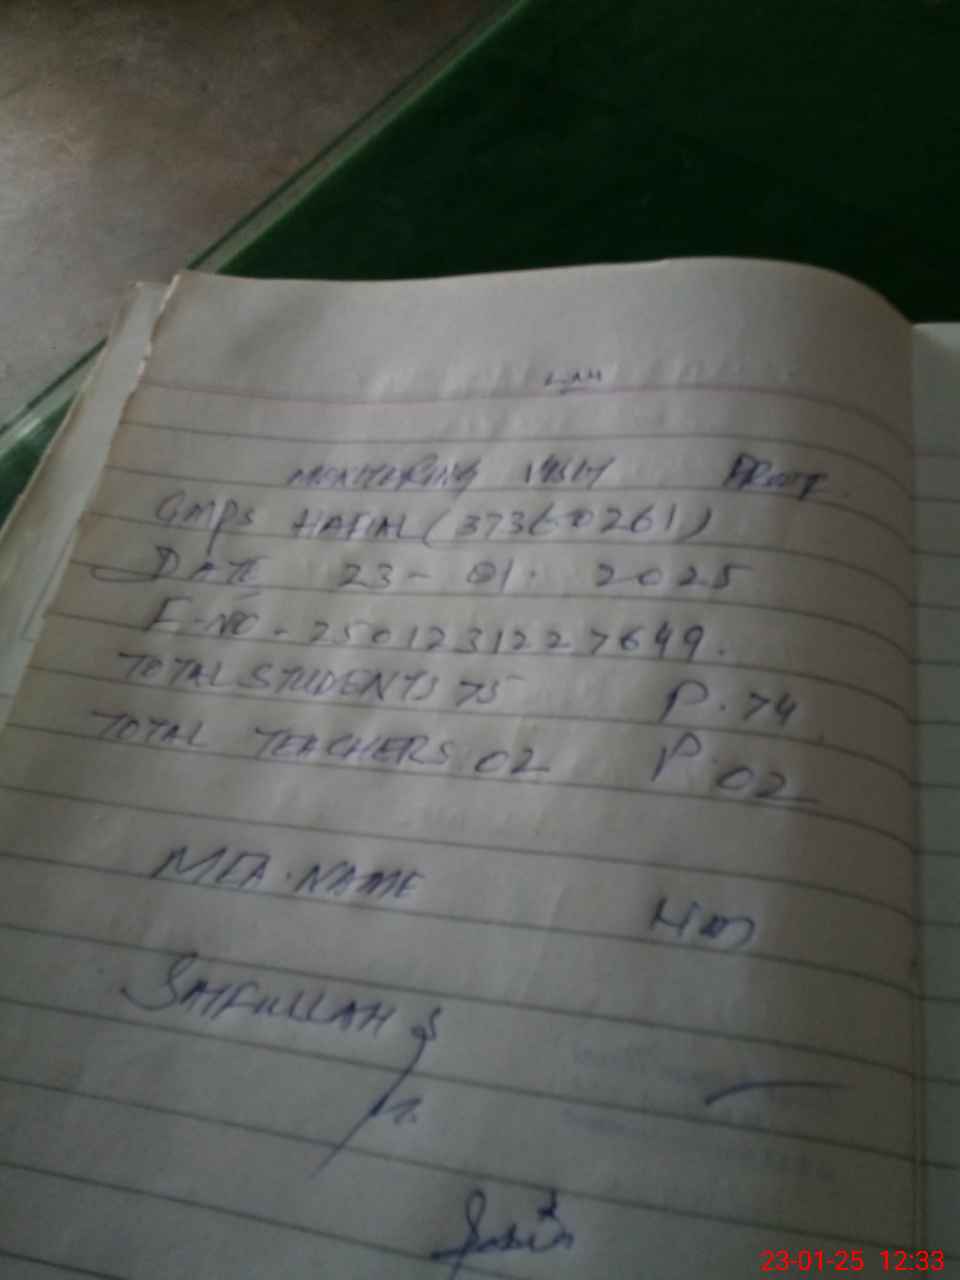 MONITORING VISIT PROOF.
GMPS HAFIAL (37360261)
DATE 23- 01. 2025
E-NO - 2501231227649.
TOTAL STUDENTS 75 P. 74
TOTAL TEACHERS 02 P. 02
MEA. NAME
SAIFULLAH
23-01-25 12:33